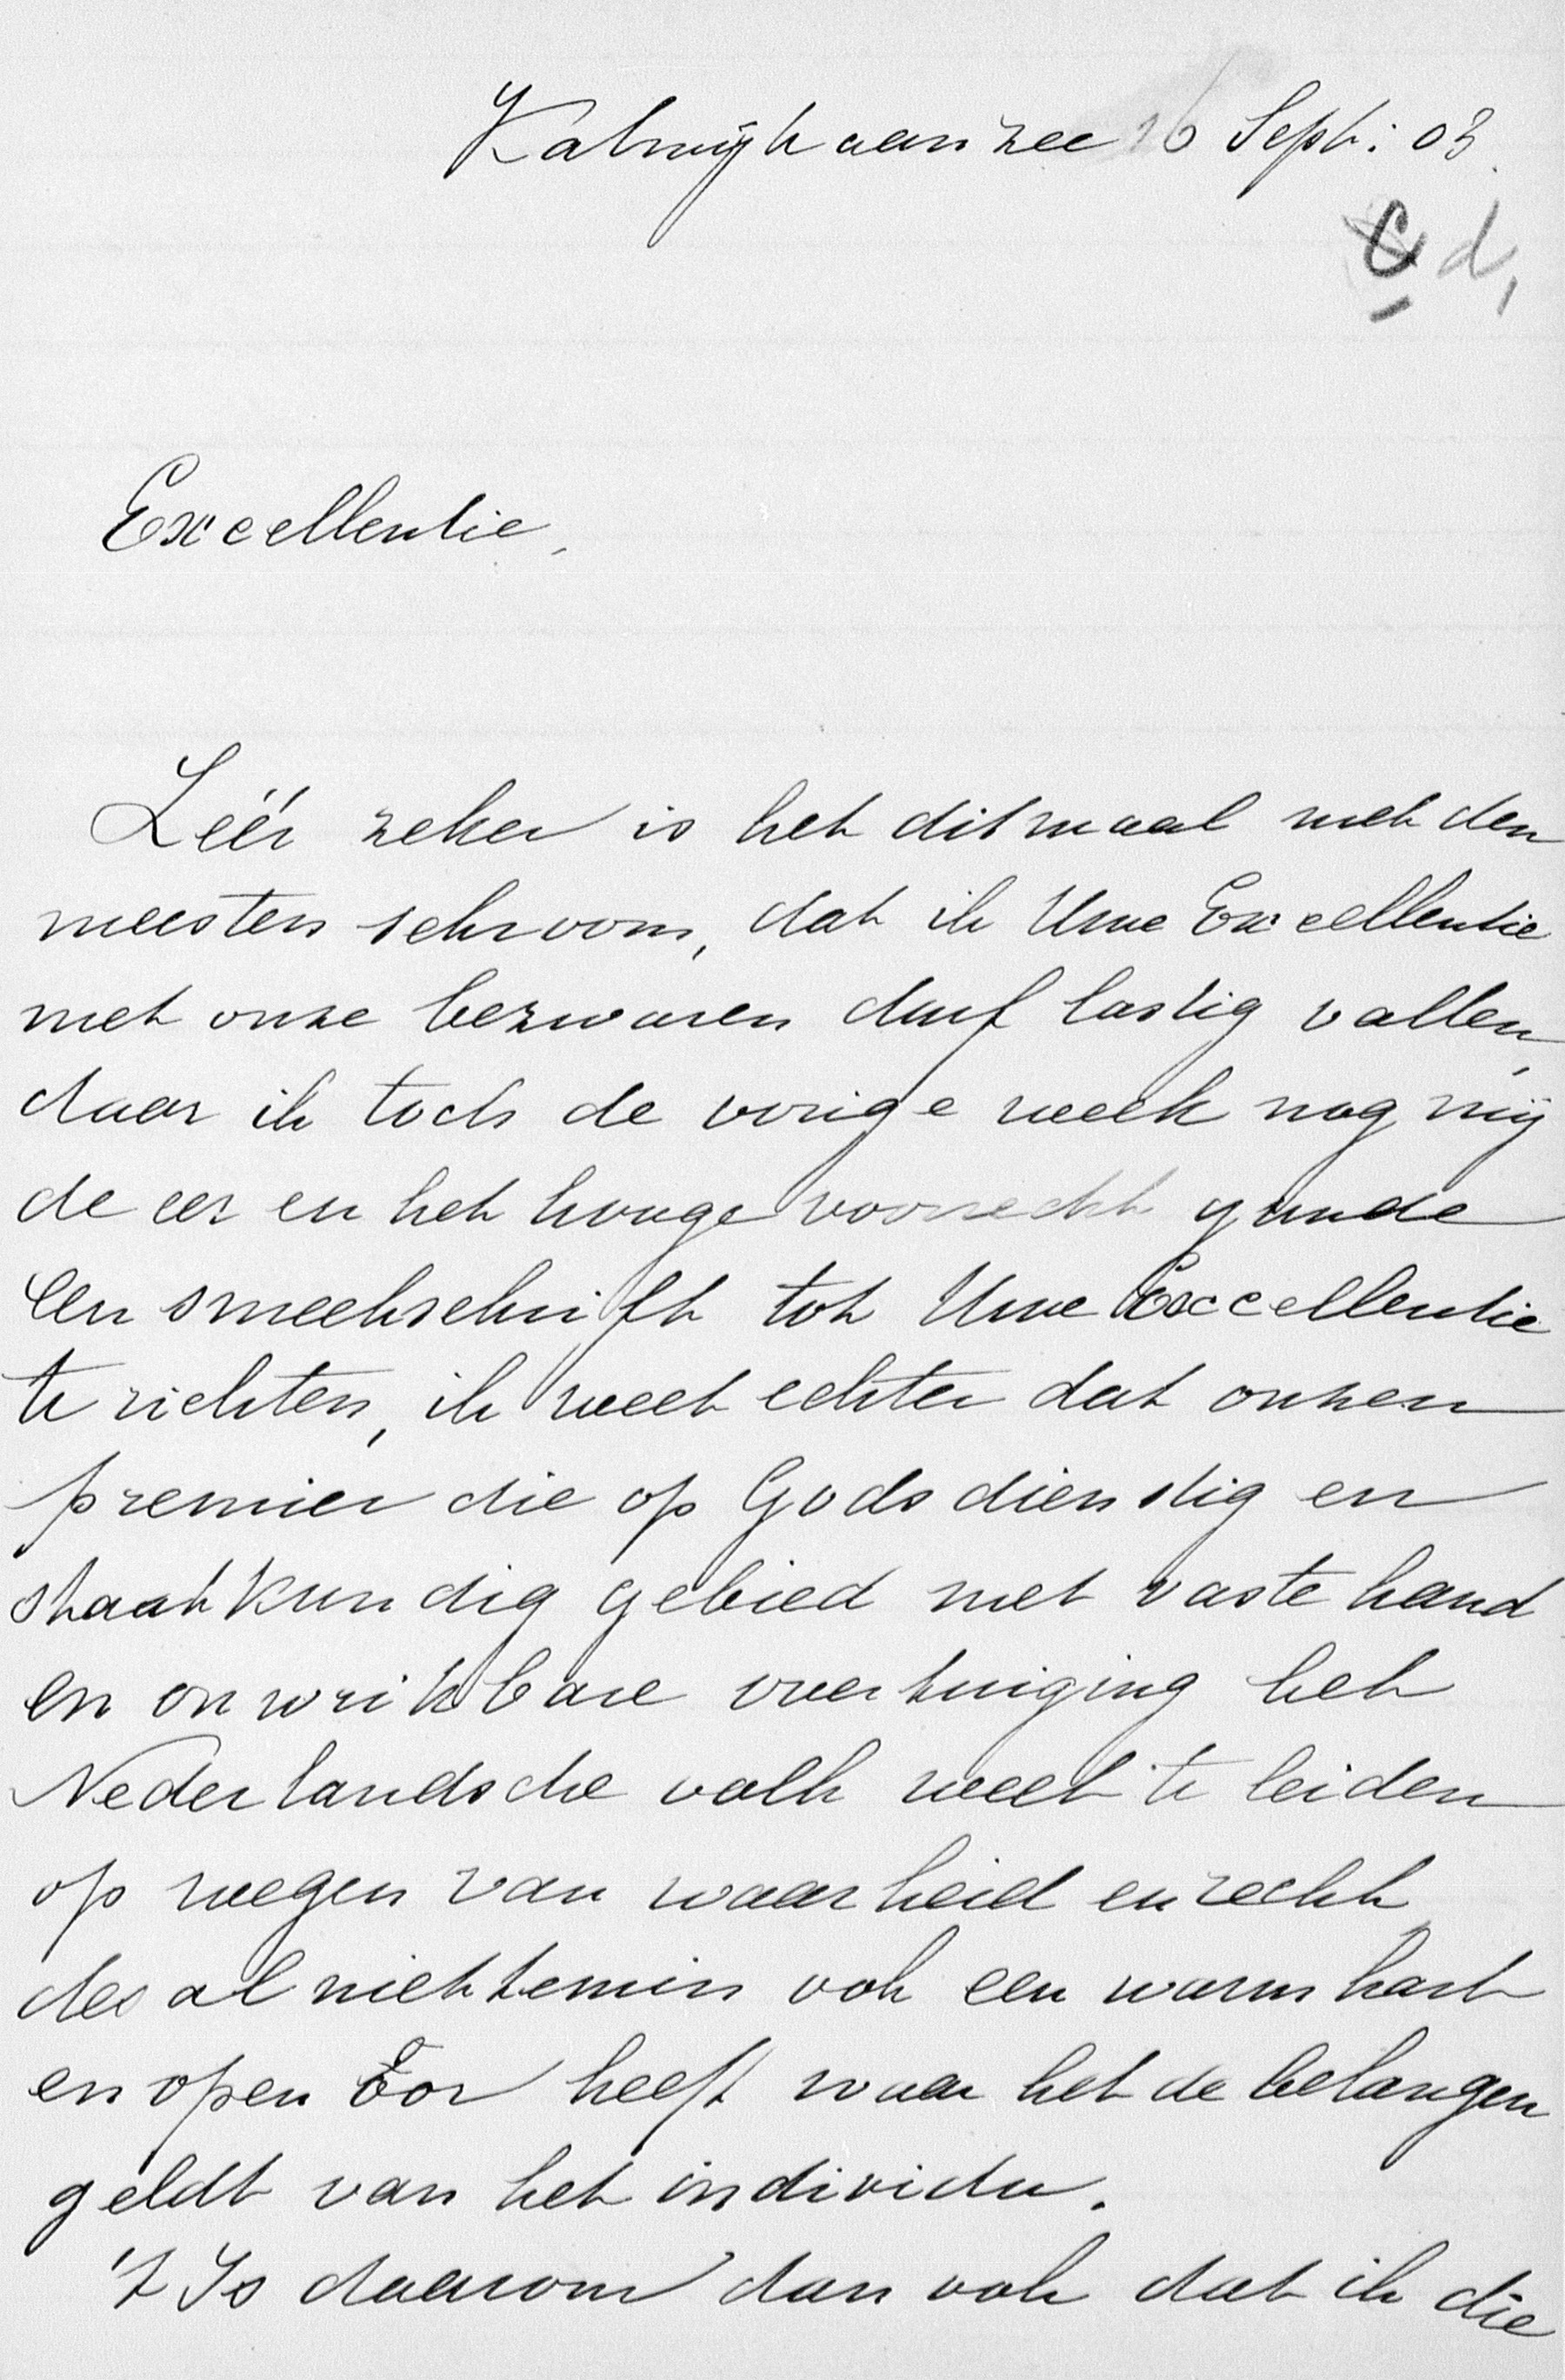 Katwijk aan zee 16 Sept: 03.
C d,
Excellentie,
Zéér zeker is het ditmaal met den
meesten schroom, dat ik Uwe Excellentie
met onze bezwaren durf lastig vallen,
daar ik toch de vorige week nog mij
de eer en het hooge voorrecht gunde
een smeekschrift tot Uwe Excellentie
te richten, ik weet echter dat onzen
premier die op Godsdienstig en
staatkundig gebied met vaste hand
en onwrikbare overtuiging het
Nederlandsche volk weet te leiden
op wegen van waarheid en recht
des al niettemin ook een warm hart
en open oor heeft waar het de belangen
geldt van het individu.
't Is daarom dan ook dat ik die